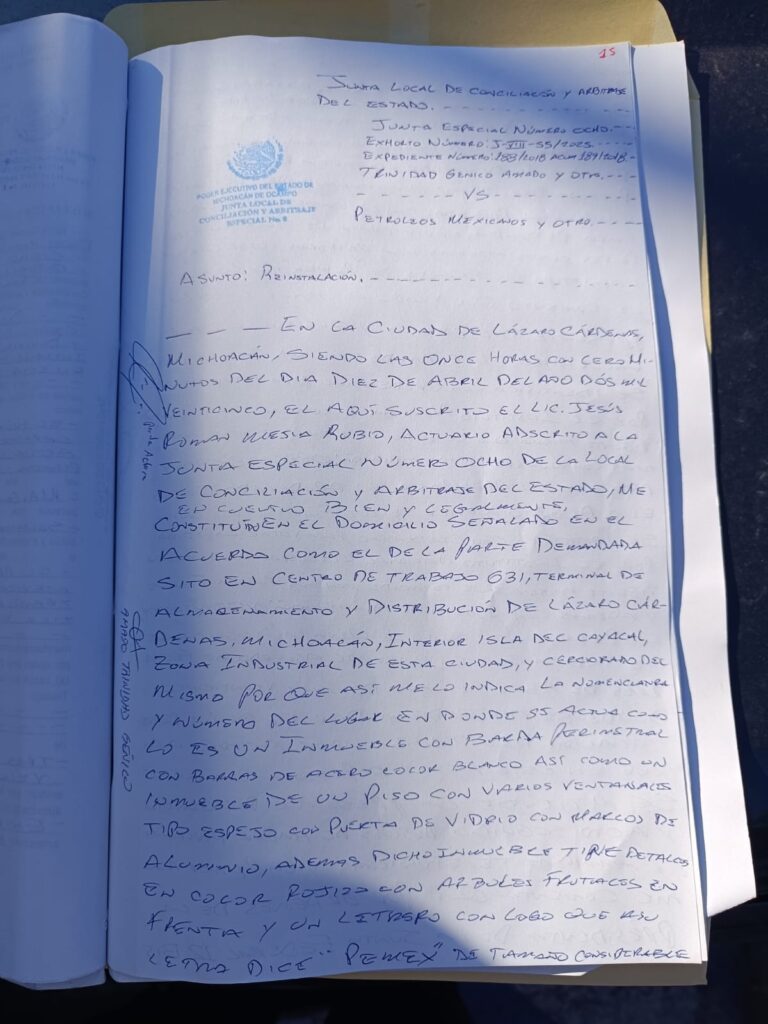 15
JUNTA LOCAL DE CONCILIACIÓN Y ARBITRAJE
DEL ESTADO.
JUNTA ESPECIAL NÚMERO OCHO.
EXHORTO NÚMERO: J-VIII-55/2025.
EXPEDIENTE NÚMERO: 188/2018 ACUM 189/2018.
TRINIDAD GENICO AMADO Y OTROS.
VS
PETROLEOS MEXICANOS Y OTRO.
PODER EJECUTIVO DEL ESTADO DE
MICHOACÁN DE OCAMPO
JUNTA LOCAL DE
CONCILIACIÓN Y ARBITRAJE
ESPECIAL No. 8
ASUNTO: REINSTALACIÓN.
EN LA CIUDAD DE LÁZARO CÁRDENAS,
MICHOACÁN, SIENDO LAS ONCE HORAS CON CERO MI-
NUTOS DEL DIA DIEZ DE ABRIL DEL AÑO DÓS MIL
VEINTICINCO, EL AQUÍ SUSCRITO EL LIC. JESÚS
ROMAN RUBIO, ACTUARIO ADSCRITO A LA
JUNTA ESPECIAL NÚMERO OCHO DE LA LOCAL
DE CONCILIACIÓN Y ARBITRAJE DEL ESTADO, ME
EN CUENTRO BIEN Y LEGALMENTE,
CONSTITUÍDO EN EL DOMICILIO SEÑALADO EN EL
ACUERDO COMO EL DE LA PARTE DEMANDADA
SITO EN CENTRO DE TRABAJO 631, TERMINAL DE
ALMACENAMIENTO Y DISTRIBUCIÓN DE LÁZARO CÁR-
DENAS, MICHOACÁN, INTERIOR ISLA DEL CAYACAL,
ZONA INDUSTRIAL DE ESTA CIUDAD, Y CERCIORADO DEL
MISMO POR QUE ASÍ ME LO INDICA LA NOMENCLATURA
Y NÚMERO DEL LUGAR EN DONDE SE ACTUA COMO
LO ES UN INMUEBLE CON BARDA PERIMETRAL
CON BARRAS DE ACERO COLOR BLANCO ASÍ COMO UN
INMUEBLE DE UN PISO CON VARIOS VENTANALES
TIPO ESPEJO CON PUERTA DE VIDRIO CON MARCOS DE
ALUMINIO, ADEMAS DICHO INMUEBLE TIENE DETALLES
EN COLOR ROJIZO CON ARBOLES FRUTALES EN
FRENTE Y UN LETRERO CON LOGO QUE A SU
LETRA DICE "PEMEX" DE TAMAÑO CONSIDERABLE
Parte Actora
AMADO TRINIDAD GENICO